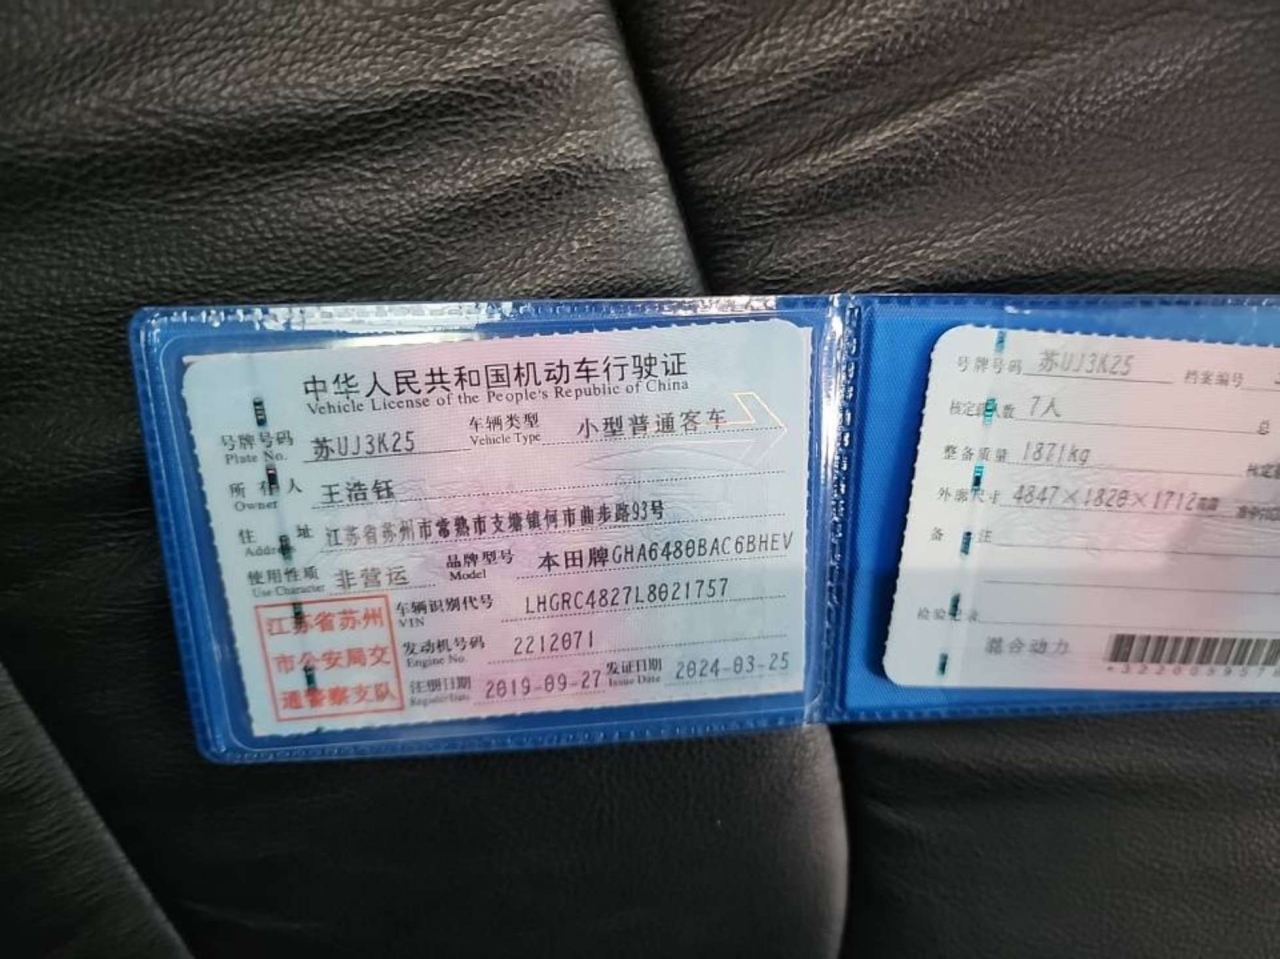 中华人民共和国机动车行驶证
Vehicle License of the People's Republic of China
号牌号码 苏UJ3K25 车辆类型 小型普通客车
Plate No. Vehicle Type
所有人 王浩钰
Owner
住 址 江苏省苏州市常熟市支塘镇何市曲步路93号
Address
使用性质 非营运 品牌型号 本田牌GHA6480BAC6BHEV
Use Character Model
江苏省苏州
市公安局交
通警察支队
车辆识别代号 LHGRC4827L8021757
VIN
发动机号码 2212071
Engine No.
注册日期 2019-09-27 发证日期 2024-03-25
Register Date Issue Date
号牌号码 苏UJ3K25 档案编号
核定载人数 7人 总
整备质量 1871kg 核定
外廓尺寸 4847×1820×1712
备 注
检验记录
混合动力